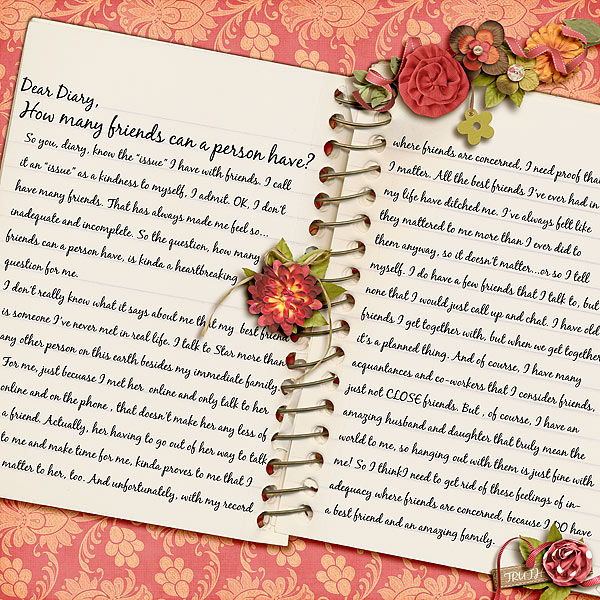 Dear Diary,
How many friends can a person have?
So you, diary, know the "issue" I have with friends. I call
it an "issue" as a kindness to myself, I admit. OK, I don't
have many friends. That has always made me feel so...
inadequate and incomplete. So the question, how many
friends can a person have, is kinda a heartbreaking
question for me.
I don't really know what it says about me that my best friend
is someone I've never met in real life. I talk to Star more than
any other person on this earth besides my immediate family.
For me, just becuase I met her online and only talk to her
online and on the phone, that doesn't make her any less of
a friend. Actually, her having to go out of her way to talk
to me and make time for me, kinda proves to me that I
matter to her, too. And unfortunately, with my record
where friends are concerned, I need proof that
I matter. All the best friends I've ever had in
my life have ditched me. I've always felt like
they mattered to me more than I ever did to
them anyway, so it doesn't matter...or so I tell
myself. I do have a few friends that I talk to, but
none that I would just call up and chat. I have old
friends I get together with, but when we get together
it's a planned thing. And of course, I have many
acquantances and co-workers that I consider friends,
just not CLOSE friends. But, of course, I have an
amazing husband and daughter that truly mean the
world to me, so hanging out with them is just fine with
me! So I thinkI need to get rid of these feelings of in-
adequacy where friends are concerned, because I DO have
a best friend and an amazing family.
TRUTH